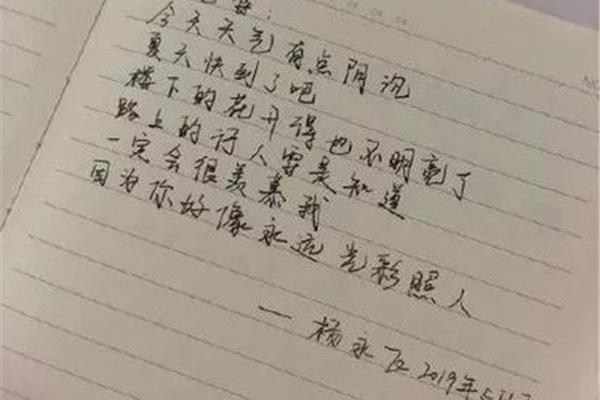 今天天气有点阴沉
夏天快到了吧
楼下的花开得也不明亮了
路上的行人要是知道
一定会很羡慕我
因为你好像永远光彩照人
— 杨永飞 2019年5月